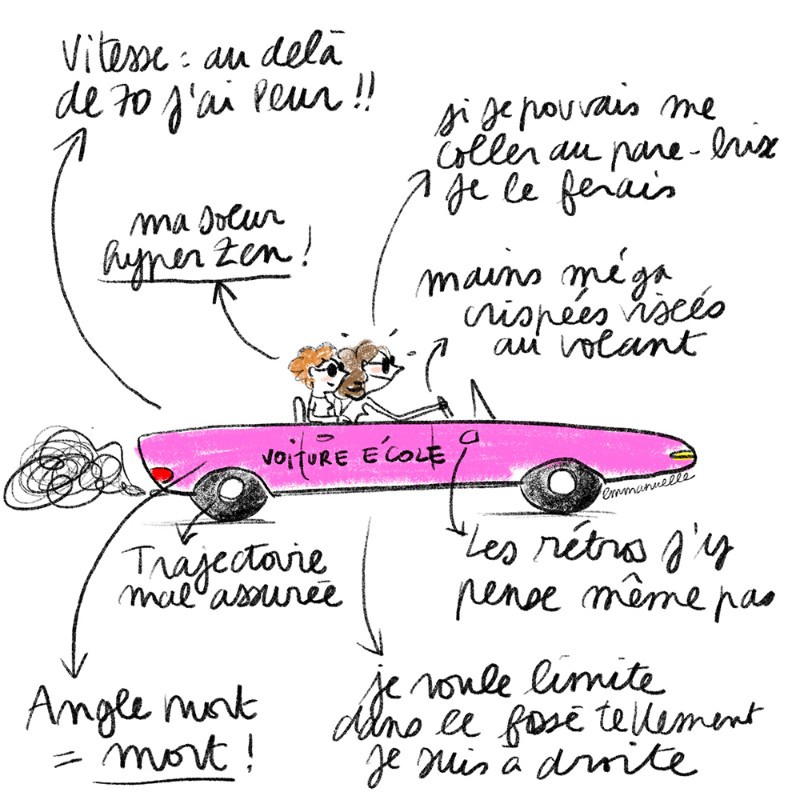 Vitesse : au delà
de 70 j'ai peur !!
si je pouvais me
coller au pare-brise
je le ferais
ma soeur
hyper zen !
mains méga
crispées vissées
au volant
VOITURE ÉCOLE
emmanuelle
Trajectoire
mal assurée
Les rétros j'y
pense même pas
Angle mort
= mort !
je roule limite
dans le fossé tellement
je suis à droite